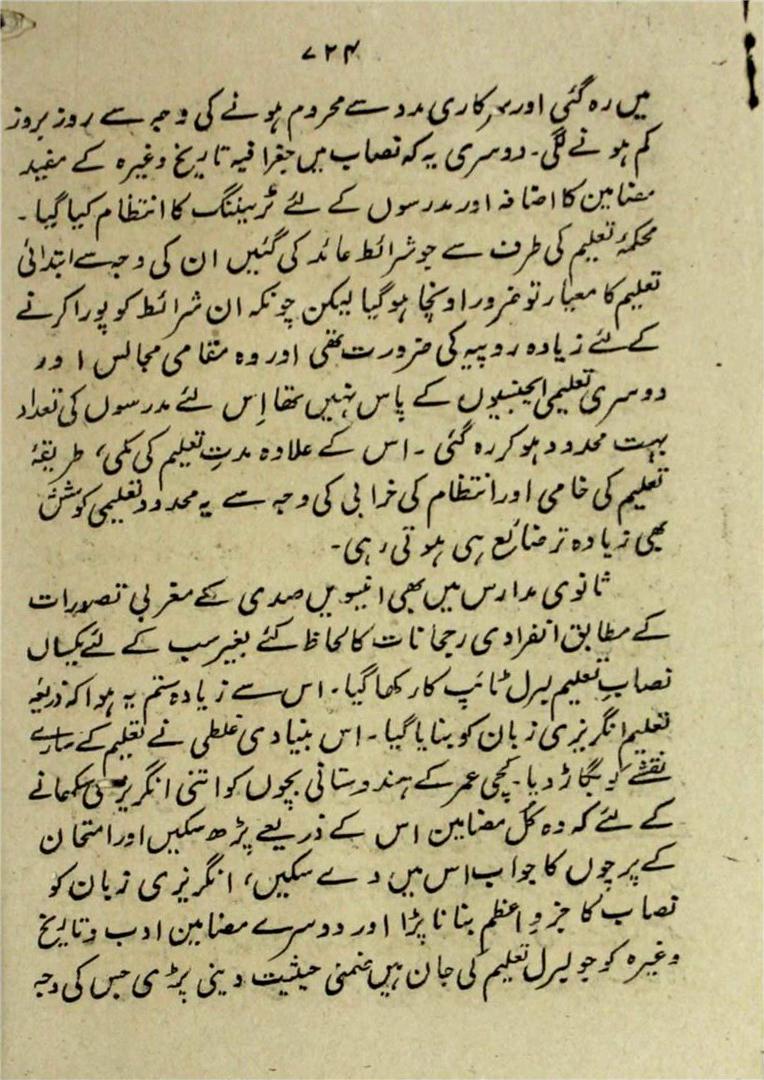 ۷۲۴
میں رہ گئی اور سرکاری مدد سے محروم ہونے کی وجہ سے روز بروز
کم ہونے لگی۔ دوسری یہ کہ نصاب میں جغرافیہ تاریخ وغیرہ کے مفید
مضامین کا اضافہ اور مدرسوں کے لئے ٹریننگ کا انتظام کیا گیا۔
محکمۂ تعلیم کی طرف سے جو شرائط عائد کی گئیں ان کی وجہ سے ابتدائی
تعلیم کا معیار تو ضرور اونچا ہو گیا لیکن چونکہ ان شرائط کو پورا کرنے
کے لئے زیادہ روپیہ کی ضرورت تھی اور وہ مقامی مجالس اور
دوسری تعلیمی ایجنسیوں کے پاس نہیں تھا اِس لئے مدرسوں کی تعداد
بہت محدود ہو کر رہ گئی۔ اس کے علاوہ مدتِ تعلیم کی کمی، طریقۂ
تعلیم کی خامی اور انتظام کی خرابی کی وجہ سے یہ محدود تعلیمی کوشش
بھی زیادہ تر ضائع ہی ہوتی رہی۔
ثانوی مدارس میں بھی انیسویں صدی کے مغربی تصورات
کے مطابق انفرادی رجحانات کا لحاظ کئے بغیر سب کے لئے یکساں
نصابِ تعلیم لبرل ٹائپ کا رکھا گیا۔ اس سے زیادہ ستم یہ ہوا کہ ذریعۂ
تعلیم انگریزی زبان کو بنایا گیا۔ اس بنیادی غلطی نے تعلیم کے سارے
نقشے کو بگاڑ دیا۔ کچی عمر کے ہندوستانی بچوں کو اتنی انگریزی سکھانے
کے لئے کہ وہ کل مضامین اس کے ذریعے پڑھ سکیں اور امتحان
کے پرچوں کا جواب اس میں دے سکیں، انگریزی زبان کو
نصاب کا جزوِ اعظم بنانا پڑا اور دوسرے مضامین ادب و تاریخ
وغیرہ کو جو لبرل تعلیم کی جان ہیں ضمنی حیثیت دینی پڑی جس کی وجہ